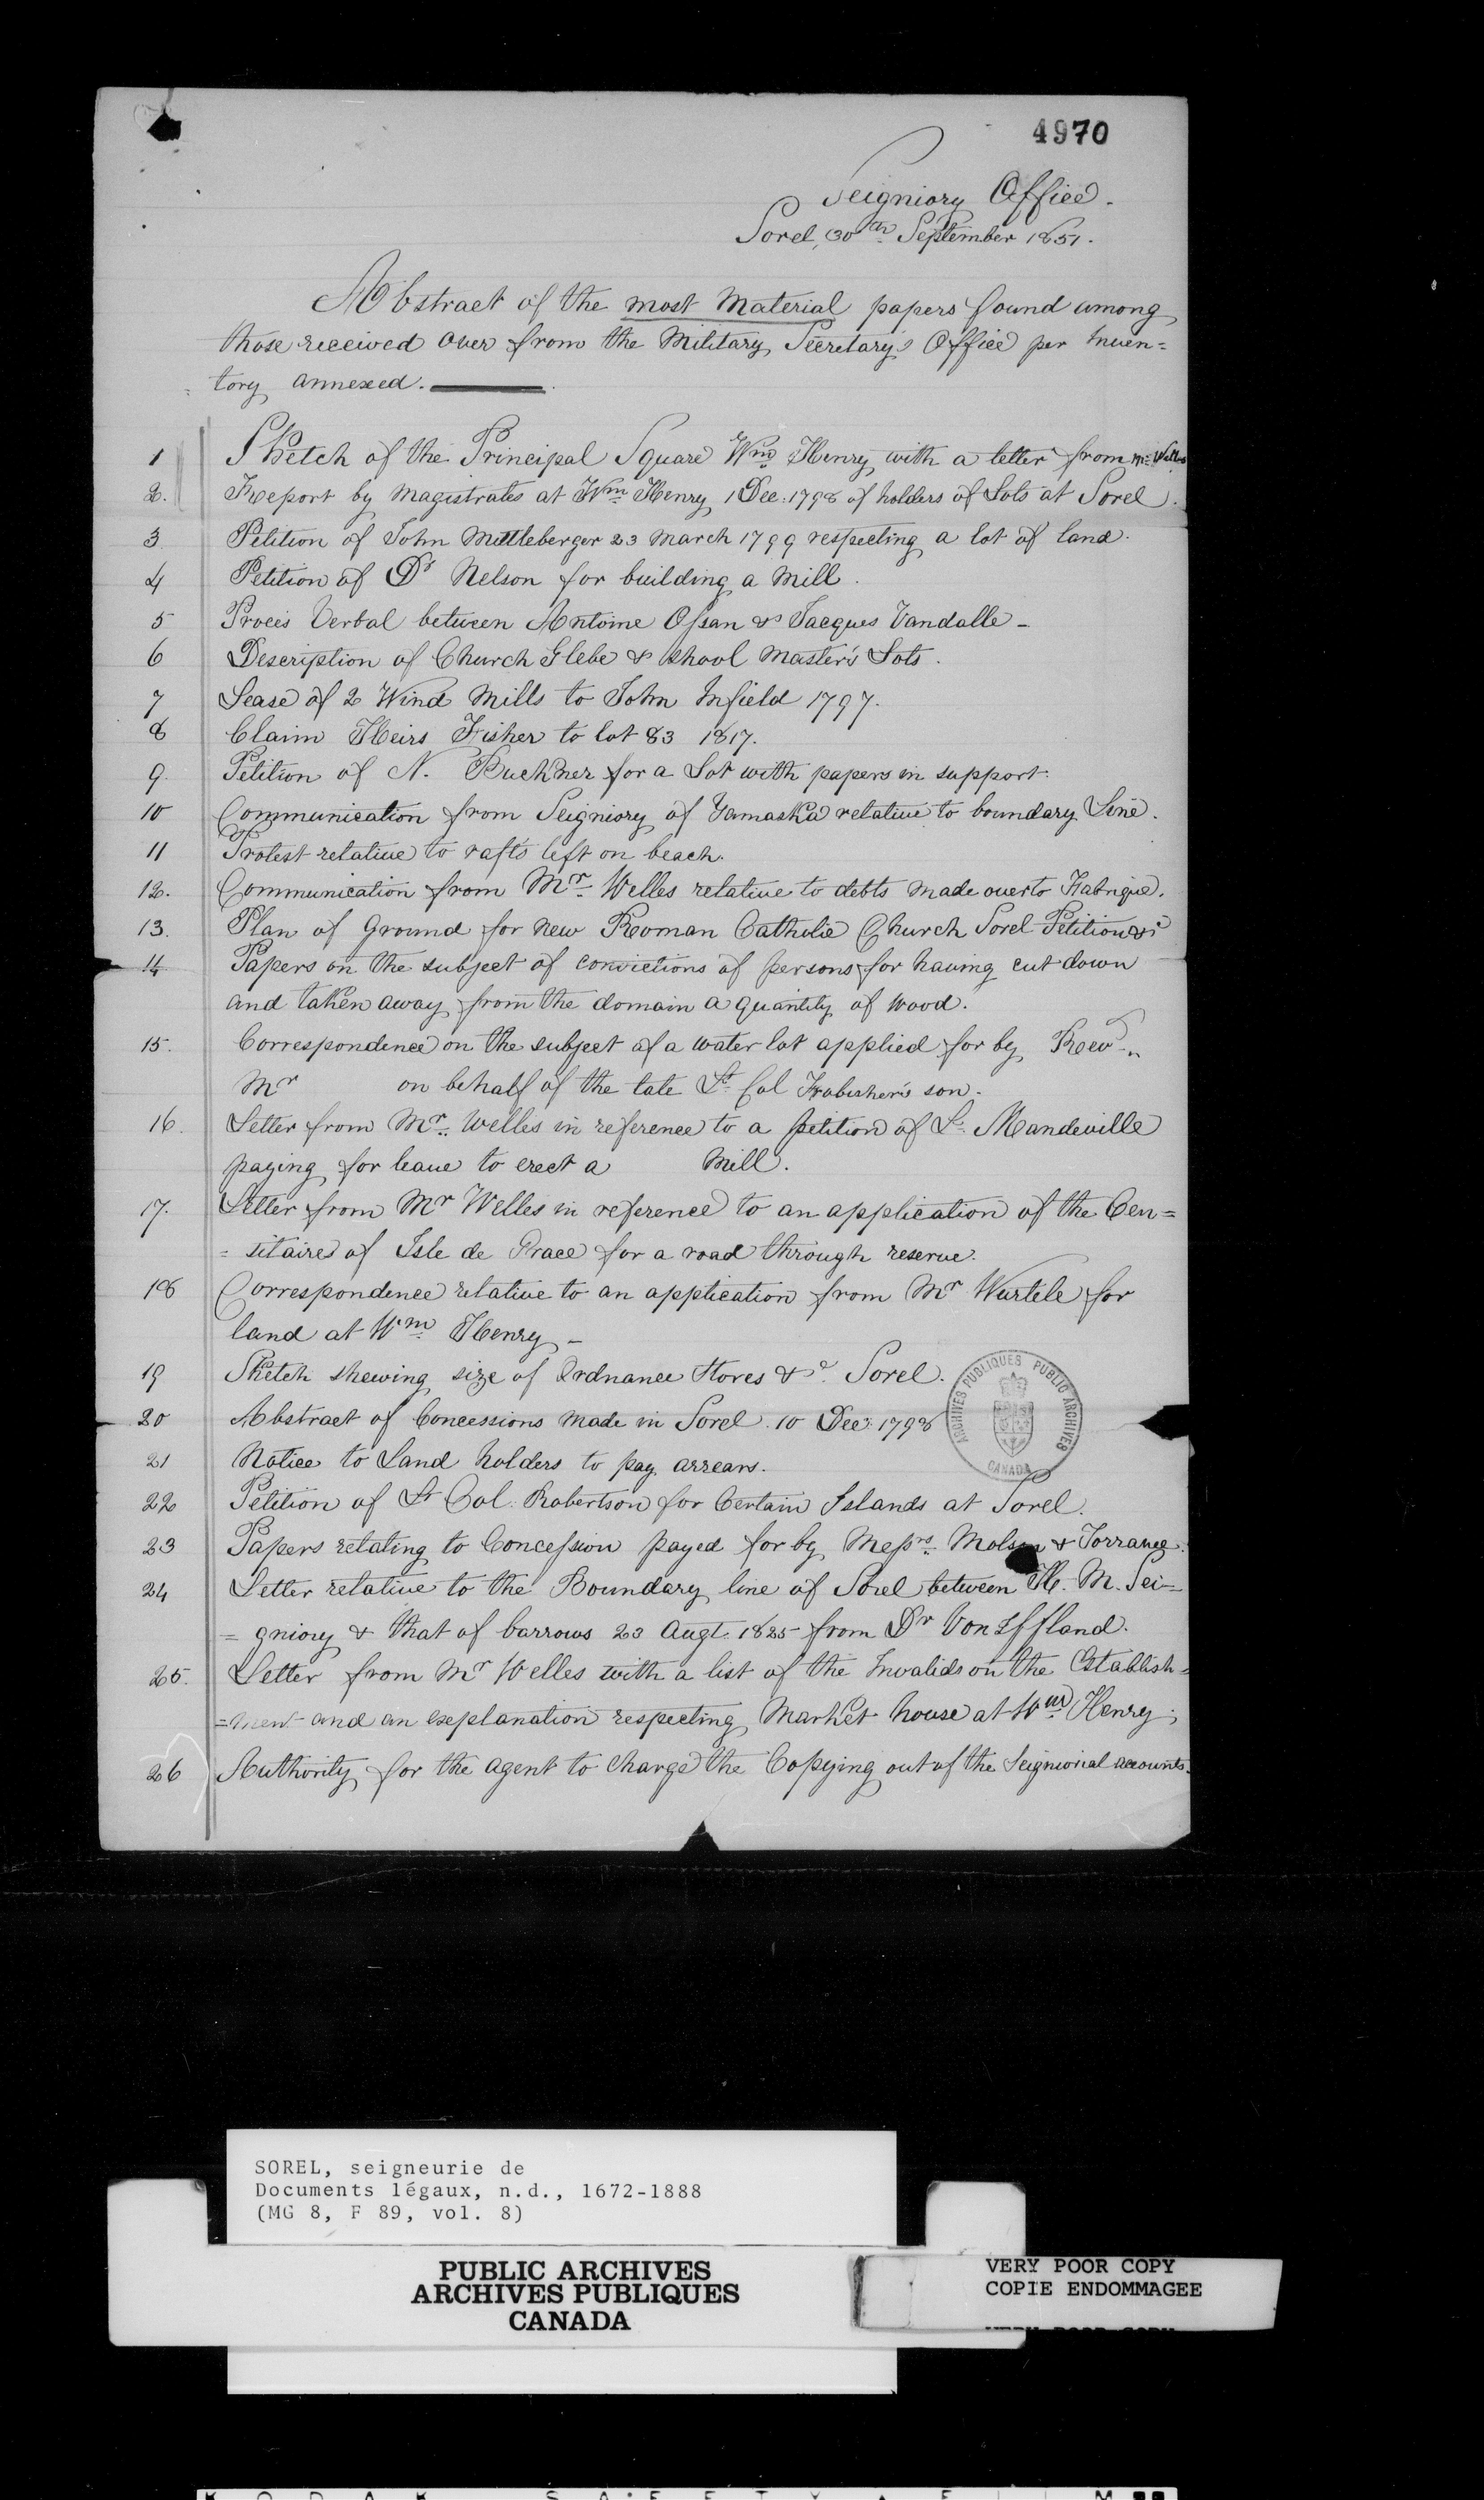 4970
Seigniory Office.
Sorel, 30th September 1851.
Abstract of the most material papers found among
those received over from the Military Secretary's Office per Inven=
tory annexed.
1 Sketch of the Principal Square Wm Henry with a letter from Mr Welles
2. Report by Magistrates at Wm Henry 1 Dec. 1798 of holders of Lots at Sorel.
3 Petition of John Mittleberger 23 March 1799 respecting a lot of land.
4 Petition of Dr Nelson for building a Mill.
5 Proces Verbal between Antoine Ossan & Jacques Vandalle -
6 Description of Church Glebe & shool Master's Lots.
7 Lease of 2 Wind Mills to John Infield 1797.
8 Claim Heirs Fisher to lot 83 1817.
9. Petition of N. Buckner for a Lot with papers in support.
10 Communication from Seigniory of Yamaska relative to boundary Line.
11 Protest relative to rafts left on beach.
12. Communication from Mr Welles relative to debts made over to Fabrique.
13. Plan of Ground for new Roman Catholic Church Sorel Petition &c
14 Papers on the subject of convictions of persons for having cut down
and taken away from the domain a quantity of wood.
15. Correspondence on the subject of a water lot applied for by Revd
Mr on behalf of the late Lt Col Frobisher's son.
16. Letter from Mr Welles in reference to a petition of L. Mandeville
paying for leave to erect a Mill.
17. Letter from Mr Welles in reference to an application of the Cen=
=sitaires of Isle de Grace for a road through reserve.
18 Correspondence relative to an application from Mr Wurtele for
land at Wm Henry -
19 Sketch shewing size of Ordnance Stores &c. Sorel.
20 Abstract of Concessions made in Sorel 10 Dec: 1798
21 Notice to Land holders to pay arrears.
22 Petition of Lt Col. Robertson for Certain Islands at Sorel.
23 Papers relating to Concession payed for by Messrs. Molson & Torrance.
24 Letter relative to the Boundary line of Sorel between H. M. Sei=
=gniory & that of barrows 23 Augt. 1825 from Dr Von Iffland.
25. Letter from Mr Welles with a list of the Invalids on the Establish=
=ment and an explanation respecting Market house at Wm Henry;
26 Authority for the agent to charge the Copying out of the Seigniorial accounts.
ARCHIVES PUBLIQUES PUBLIC ARCHIVES
CANADA
SOREL, seigneurie de
Documents légaux, n.d., 1672-1888
(MG 8, F 89, vol. 8)
PUBLIC ARCHIVES
ARCHIVES PUBLIQUES
CANADA
VERY POOR COPY
COPIE ENDOMMAGEE
VERY POOR COPY
KODAK SAFETY FILM